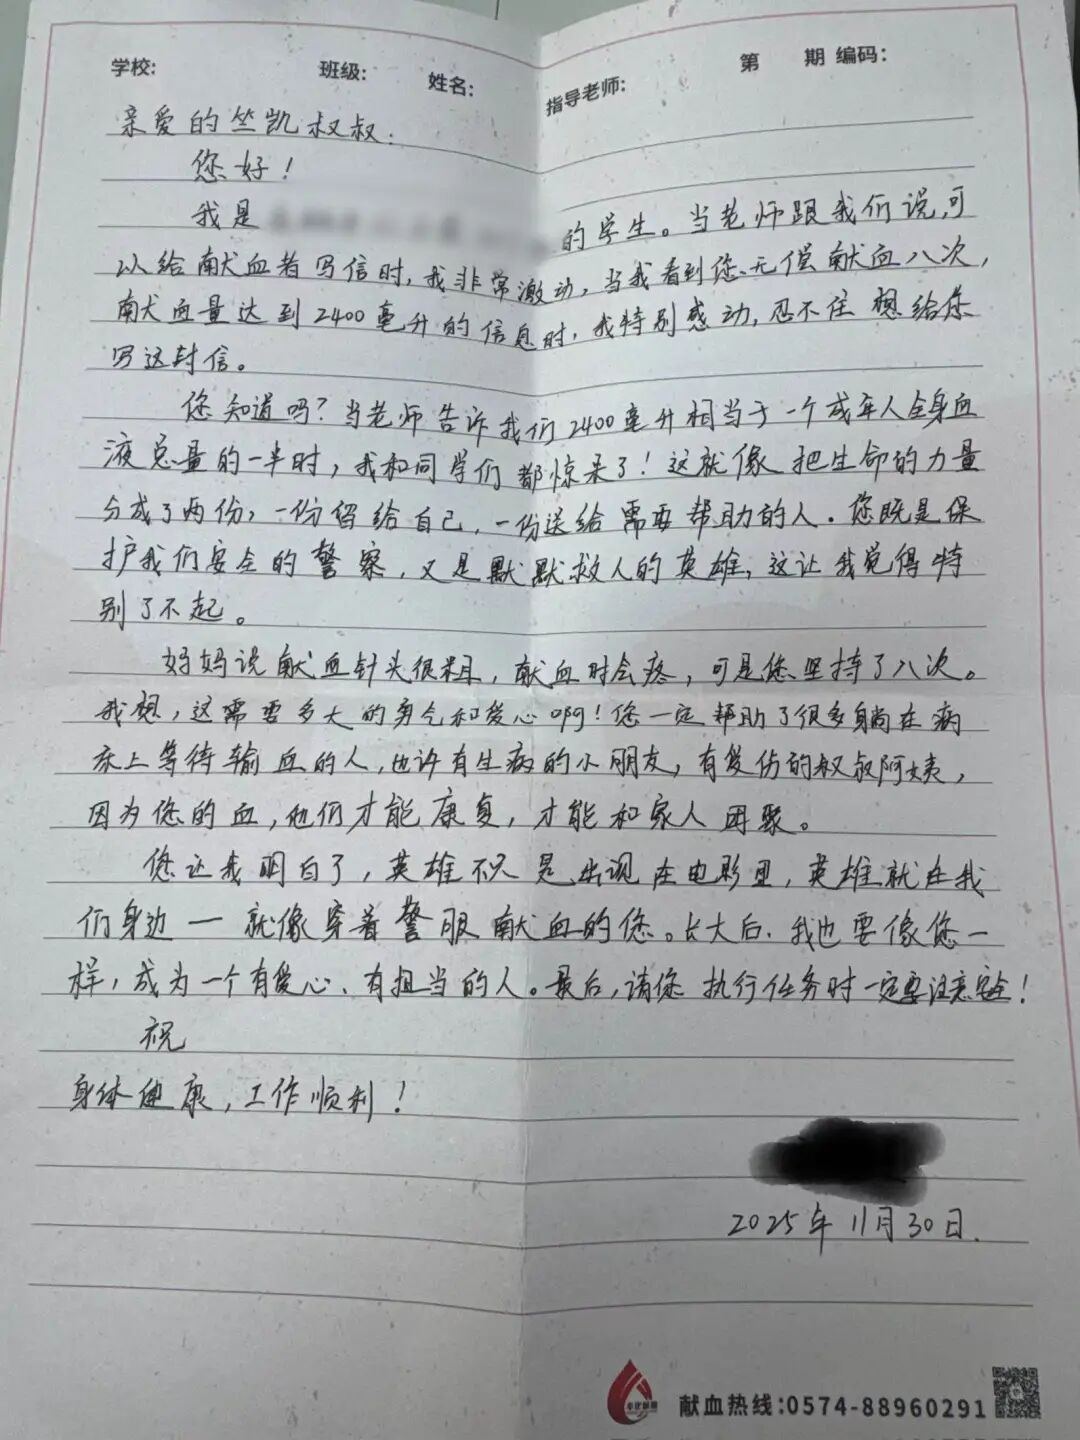 学校: 班级: 姓名: 指导老师: 第 期 编码:
亲爱的竺凯叔叔:
您好!
我是 的学生。当老师跟我们说,可
以给献血者写信时,我非常激动,当我看到您无偿献血八次,
献血量达到2400毫升的信息时,我特别感动,忍不住想给您
写这封信。
您知道吗?当老师告诉我们2400毫升相当于一个成年人全身血
液总量的一半时,我和同学们都惊呆了!这就像把生命的力量
分成了两份,一份留给自己,一份送给需要帮助的人。您既是保
护我们安全的警察,又是默默救人的英雄,这让我觉得特
别了不起。
妈妈说献血针头很粗,献血时会疼,可是您坚持了八次。
我想,这需要多大的勇气和爱心啊!您一定帮助了很多躺在病
床上等待输血的人,也许有生病的小朋友,有受伤的叔叔阿姨,
因为您的血,他们才能康复,才能和家人团聚。
您让我明白了,英雄不只是出现在电影里,英雄就在我
们身边一就像穿着警服献血的您。长大后,我也要像您一
样,成为一个有爱心、有担当的人。最后,请您执行任务时一定要注意安全!
祝
身体健康,工作顺利!
2025年11月30日.
献血热线:0574-88960291